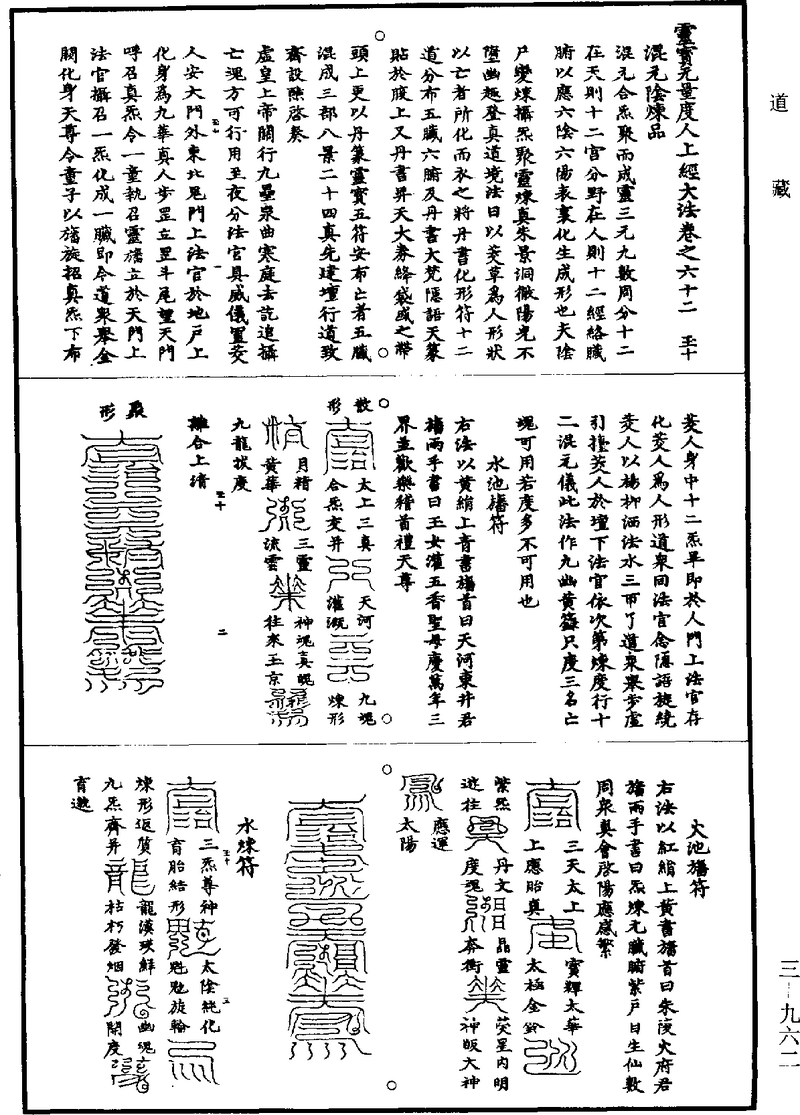 道藏
三-九六二
靈寶无量度人上經大法卷之六十二 五十
混元陰煉品
混元合炁聚而成靈三元九數周分十二
在天則十二宮分野在人則十二經絡臟
腑以應六陰六陽表裏化生成形也夫陰
尸變煉攝炁聚靈煉真朱景洞徹陽光不
墮幽趣登真道境法曰以茭草為人形狀
以亡者所化而衣之將丹書化形符十二
道分布五臟六腑及丹書大梵隱語天篆
貼於腹上又丹書昇天大券絳袋盛之帶
頭上更以丹篆靈寶五符安布亡者五臟
混成三部八景二十四真先建壇行道致
齋設醮啓奏
虛皇上帝關行九壘泉曲寒庭去訖追攝
亡魂方可行用至夜分法官具威儀置茭
人安大門外東北鬼門上法官於地戶上
化身為九華真人步罡立罡斗尾望天門
呼召真炁令一童執召靈旛立於天門上
法官攝召一炁化成一臟即令道眾舉金
闕化身天尊令童子以旛旋招真炁下布
茭人身中十二炁畢即於人門上法官存
化茭人為人形道眾同法官念隱語旋繞
茭人以楊柳洒法水三帀了道眾舉步虛
引擡茭人於壇下法官依次第煉度行十
二混元儀此法作九幽黃籙只度三名亡
魂可用若度多不可用也
水池旛符
右法以黃絹上青書旛首曰天河東井君
旛兩手書曰玉女灌五香聖母慶萬年三
界並歡樂稽首禮天尊
散形
太上三真
合炁變并
天河
灌溉
九魂
煉形
月精
黃華
三靈
流雲
神魂真魄
往來玉京
九龍拔度
五十
二
離合上清
聚形
火池旛符
右法以紅絹上黃書旛首曰朱陵火府君
旛兩手書曰炁煉元臟腑紫戶日生仙數
同眾真會啟陽應感繁
三天太上
上應胎真
寶輝太華
太極金鈴
紫炁
遊往
丹文
度魂
晶靈
奔衝
熒星內明
神皈大神
應運
太陽
水煉符
三炁尊神
育胎結形
太陰純化
魁魁旋輪
煉形返質
龍漢瑛鮮
幽魂
九炁齊并
枯朽發烟
開度
育邀